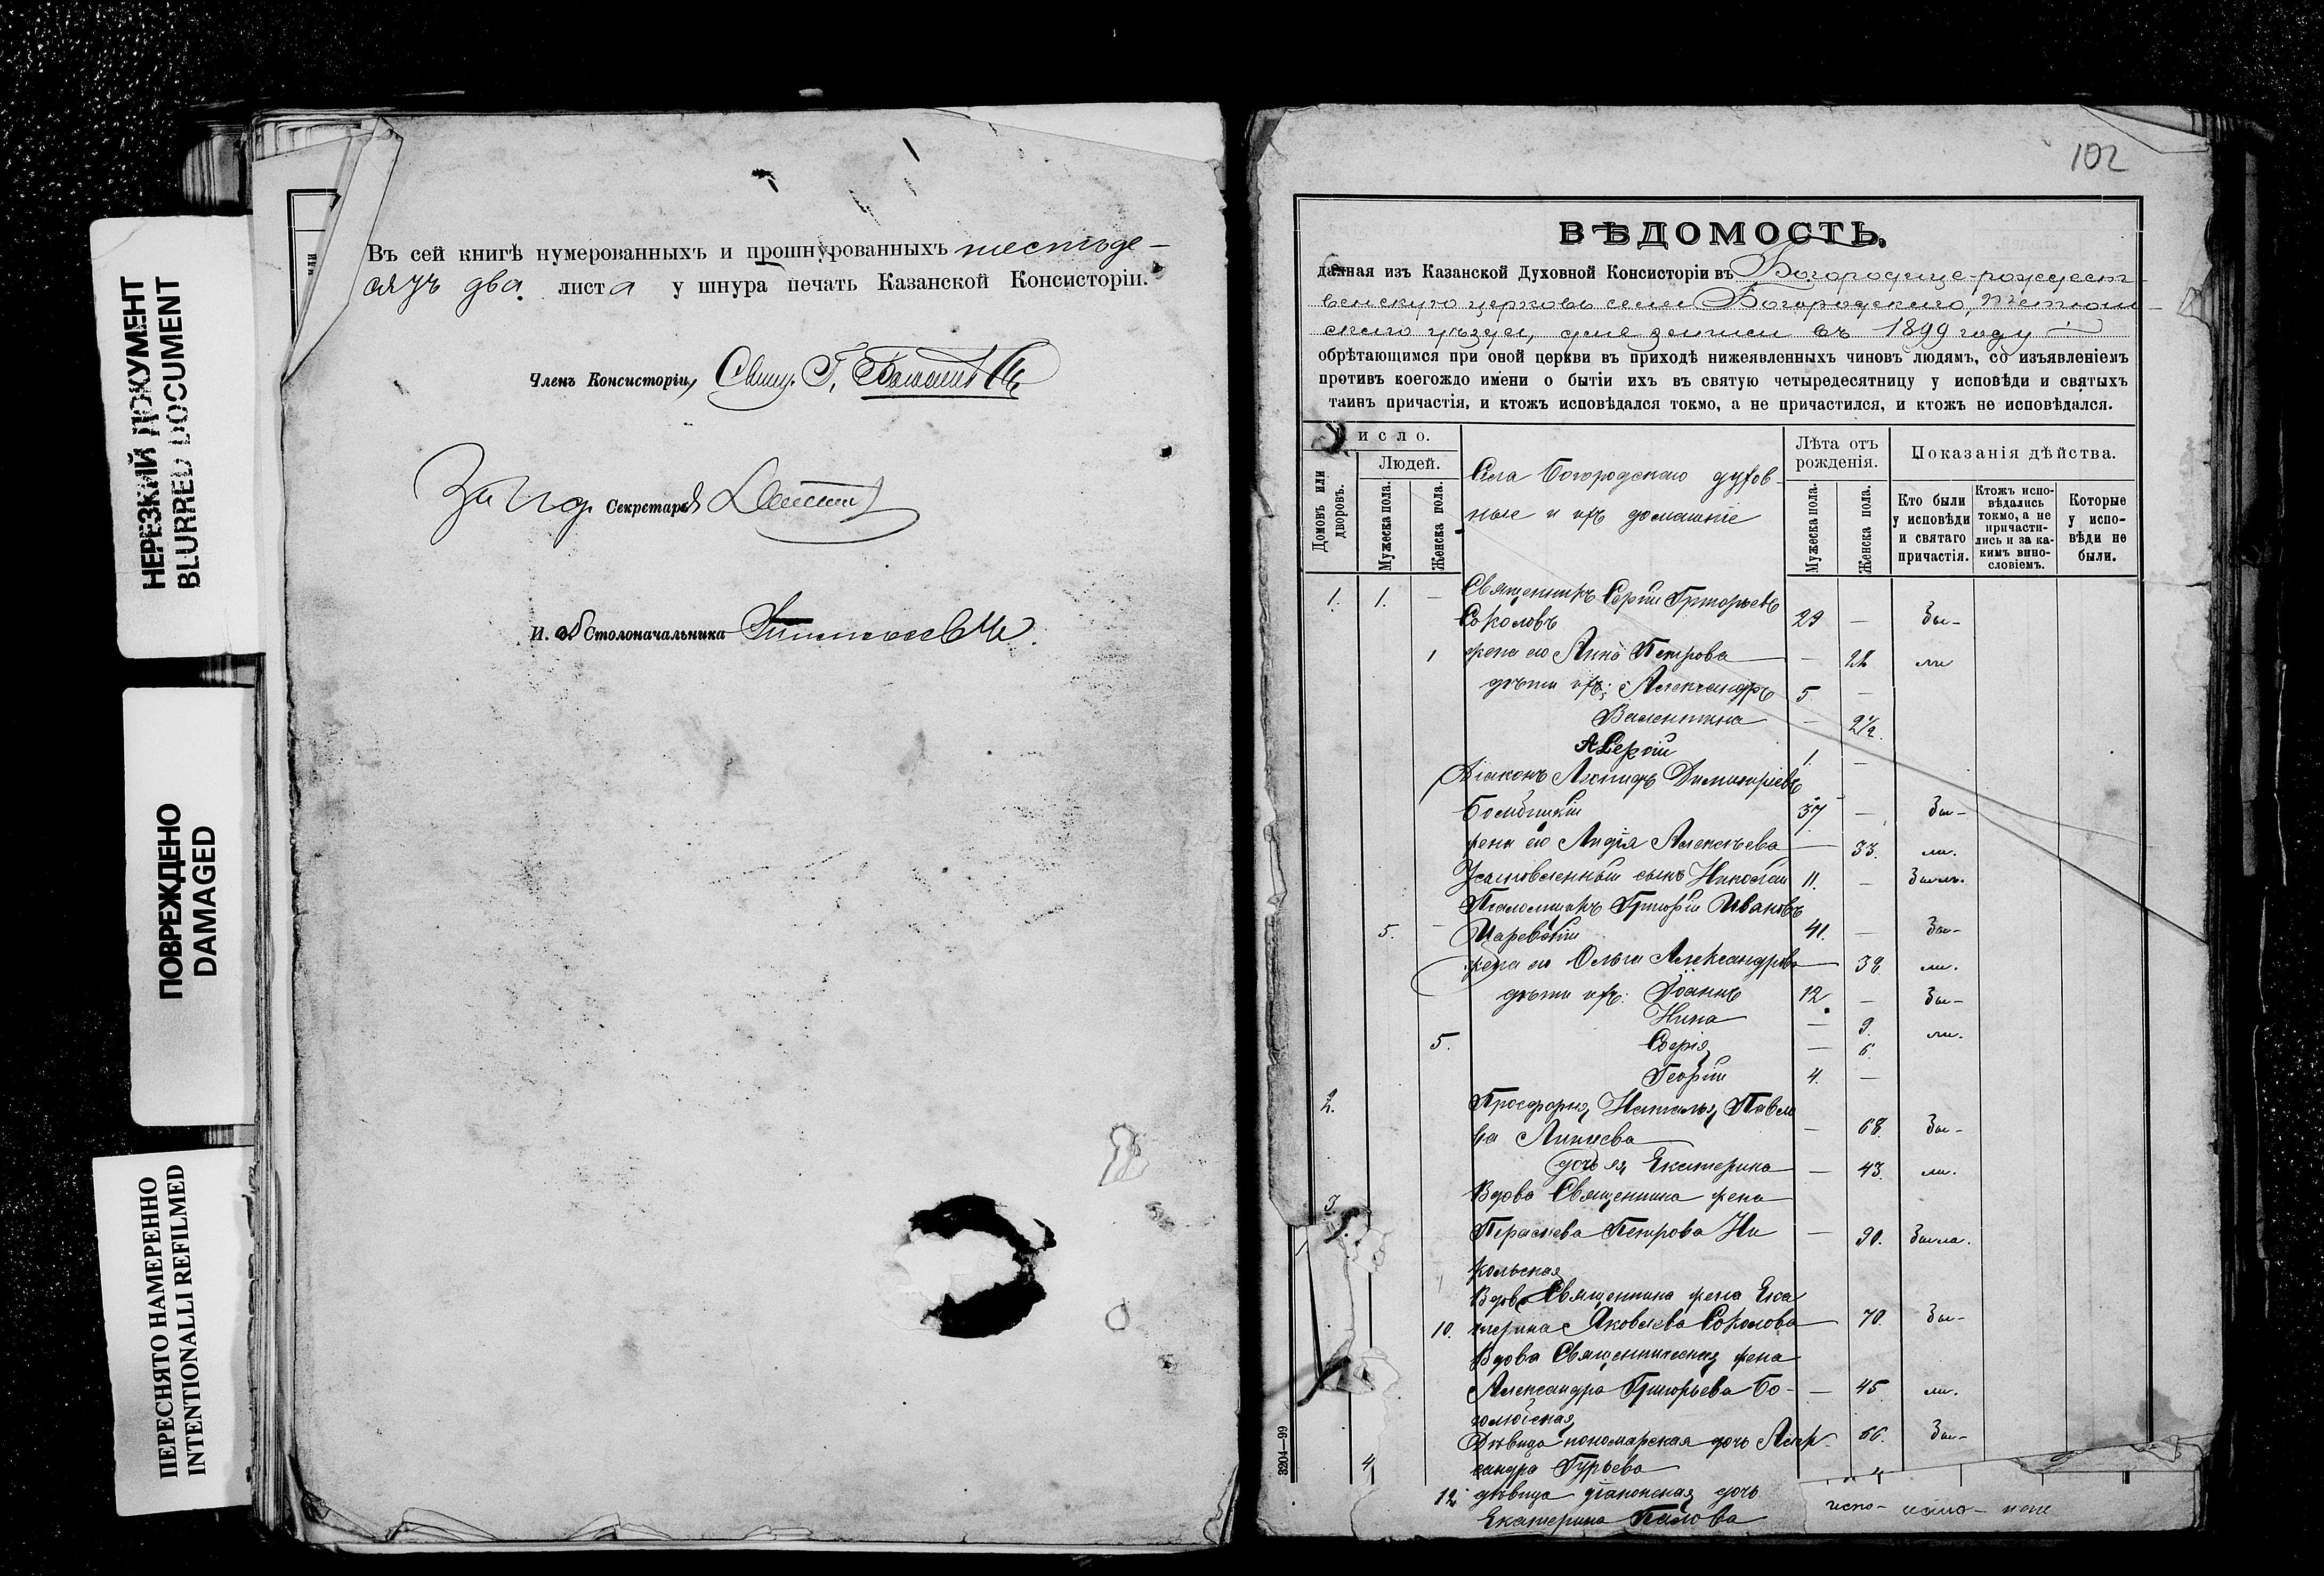 НЕРЕЗКИЙ ДОКУМЕНТ
BLURRED DOCUMENT
ПОВРЕЖДЕНО
DAMAGED
ПЕРЕСНЯТО НАМЕРЕННО
INTENTIONALLI REFILMED
Въ сей книгѣ нумерованныхъ и прошнурованныхъ шестьде-
сятъ два листа у шнура печать Казанской Консисторіи.
Членъ Консисторіи, Свящ. Г.
Секретаря
И. об Столоначальника
102
ВѢДОМОСТЬ,
данная изъ Казанской Духовной Консисторіи въ Богородице-рождест-
венскую церковь села Богородскаго, Тетюш-
скаго уѣзда, для записи въ 1899 году
обрѣтающимся при оной церкви въ приходѣ нижеявленныхъ чиновъ людямъ, со изъявленіемъ
противъ коегождо имени о бытіи ихъ въ святую четыредесятницу у исповѣди и святыхъ
таинъ причастія, и ктожъ исповѣдался токмо, а не причастился, и ктожъ не исповѣдался.
Число.
Домовъ или дворовъ.
Людей.
Мужеска пола.
Женска пола.
Села Богородскаго духов-
ные и ихъ домашніе
Лѣта отъ рожденія.
Мужеска пола.
Женска пола.
Показанія дѣйства.
Кто были у исповѣди и святаго причастія.
Ктожъ испо-вѣдались токмо, а не причасти-лись и за ка-кимъ вино-словіемъ.
Которые у испо-вѣди не были.
1. 1. — Священникъ Сергій Григорьевъ
Соколовъ 29 — Бы-
1 жена его Анна Петрова — 28 ли
дѣти ихъ: Александръ 5 —
Валентина — 2½.
Сергій 1. —
Діаконъ Леонидъ Димитріевъ
37 — Бы-
жена его Лидія Алексѣева — 33. ли.
Усыновленный сынъ Николай 11. — Былъ.
Псаломщикъ Григорій Ивановъ
5. — Царевскій 41. — Бы-
жена его Ольга Александрова — 38. ли.
дѣти ихъ: Іоаннъ 12 — Бы-
Нина — 9. ли.
5. Софія — 6.
Георгій 4. —
2. Просфорня Наталья Павло
ва — 68. Бы-
дочь ея Екатерина — 43. ли.
3. Вдова Священника жена
Параскева Петрова Ни — 90. Была.
кольская
Вдова Священника жена Ека
10. терина Яковлева Соколова 70. Бы-
Вдова Священническая жена
Александра Григорьева Бо- — 45 ли.
голюбская
Дѣвица пономарская дочь Алек 66. Бы-
4 сандра Гурьева
12. дѣвица діаконская дочь
Екатерина
3204—99